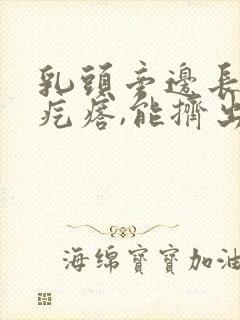 乳頭旁邊長
疙瘩,能擠出
海绵寶寶加油